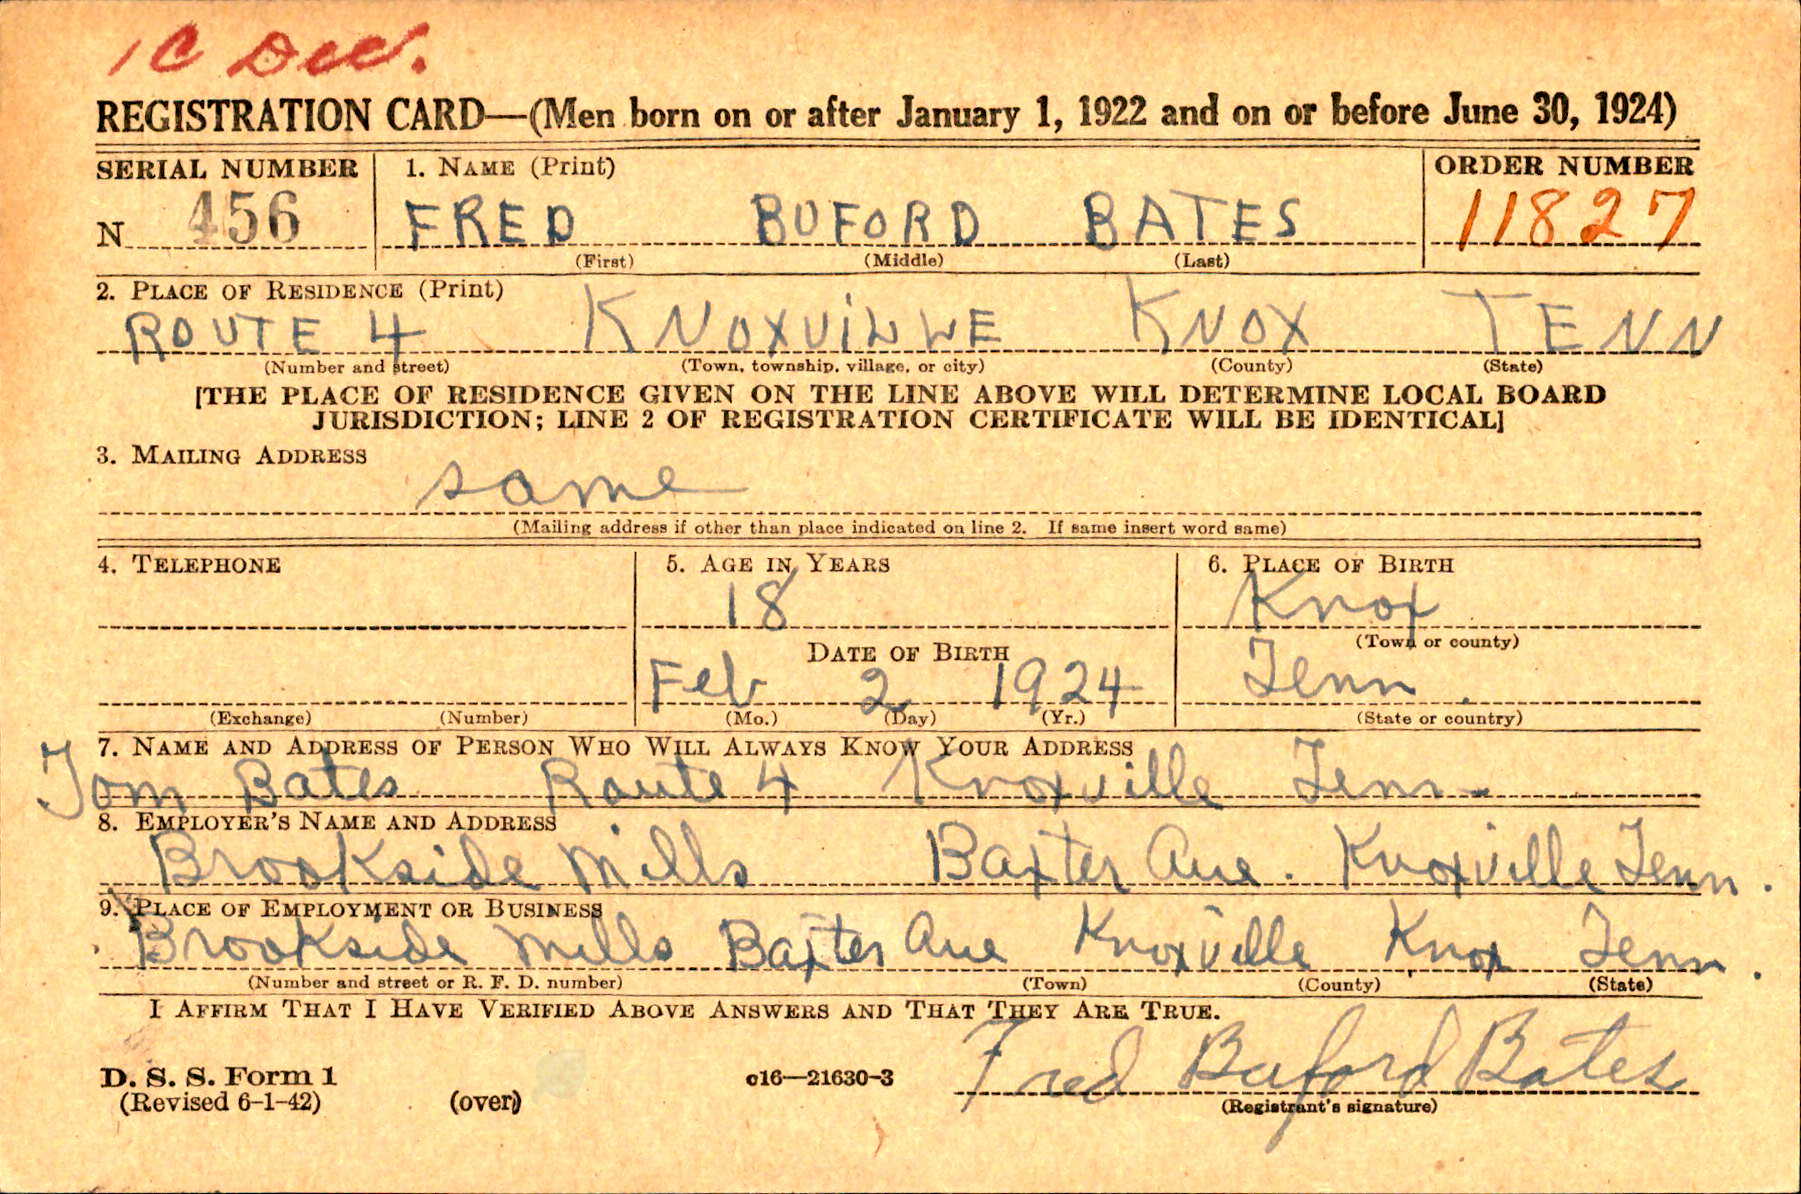 1C Dec.
REGISTRATION CARD—(Men born on or after January 1, 1922 and on or before June 30, 1924)
SERIAL NUMBER 1. NAME (Print) ORDER NUMBER
N 456 FRED BUFORD BATES 11827
(First) (Middle) (Last)
2. PLACE OF RESIDENCE (Print)
ROUTE 4 KNOXVILLE KNOX TENN
(Number and street) (Town, township, village, or city) (County) (State)
[THE PLACE OF RESIDENCE GIVEN ON THE LINE ABOVE WILL DETERMINE LOCAL BOARD
JURISDICTION; LINE 2 OF REGISTRATION CERTIFICATE WILL BE IDENTICAL]
3. MAILING ADDRESS
same
(Mailing address if other than place indicated on line 2. If same insert word same)
4. TELEPHONE 5. AGE IN YEARS 6. PLACE OF BIRTH
18 Knox
(Town or county)
DATE OF BIRTH
Feb 2 1924 Tenn.
(Exchange) (Number) (Mo.) (Day) (Yr.) (State or country)
7. NAME AND ADDRESS OF PERSON WHO WILL ALWAYS KNOW YOUR ADDRESS
Tom Bates Route 4 Knoxville Tenn.
8. EMPLOYER'S NAME AND ADDRESS
Brookside Mills Baxter Ave. Knoxville Tenn.
9. PLACE OF EMPLOYMENT OR BUSINESS
Brookside Mills Baxter Ave Knoxville Knox Tenn.
(Number and street or R. F. D. number) (Town) (County) (State)
I AFFIRM THAT I HAVE VERIFIED ABOVE ANSWERS AND THAT THEY ARE TRUE.
D. S. S. Form 1
(Revised 6-1-42) (over) c16—21630-3 Fred Buford Bates
(Registrant's signature)